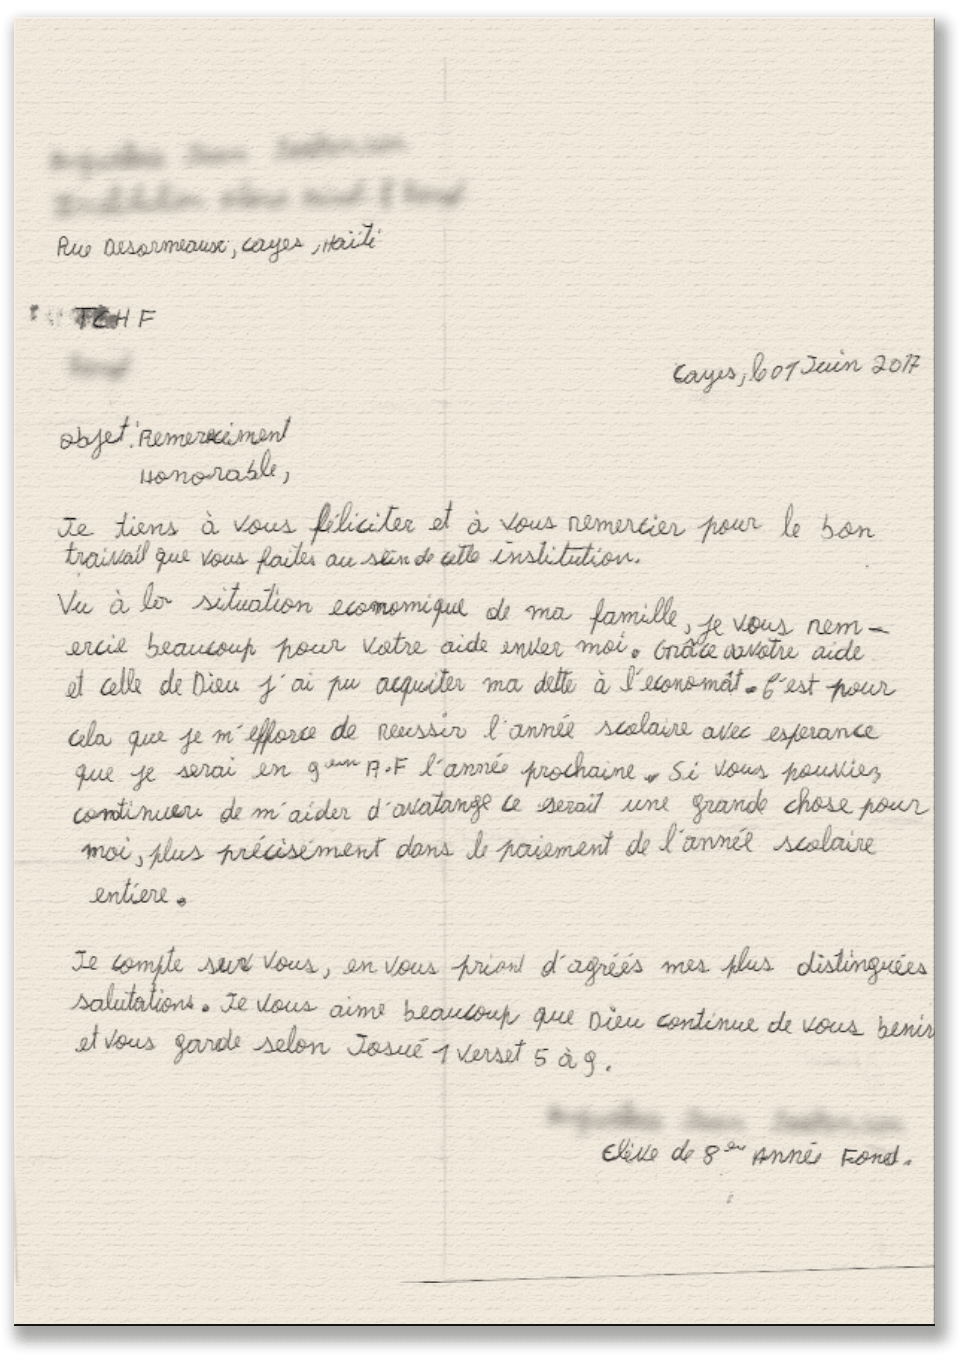 Rue Desormeaux, Cayes, Haïti
TCHF
Cayes, le 01 Juin 2017
Objet: Remerciment
Honorable,
Je tiens à vous féliciter et à vous remercier pour le bon
traivail que vous faites au sein de cette institution.
Vu à la situation economique de ma famille, je vous rem-
ercie beaucoup pour votre aide enver moi. Grâce à votre aide
et celle de Dieu j'ai pu acquiter ma dette à l'economât. C'est pour
cela que je m'efforce de reussir l'année scolaire avec esperance
que je serai en 9eme A.F l'année prochaine. Si vous pouviez
continuer de m'aider d'avatange ce serait une grande chose pour
moi, plus précisément dans le paiement de l'année scolaire
entiere.
Je compte sur vous, en vous priant d'agréés mes plus distinguées
salutations. Je vous aime beaucoup que Dieu continue de vous benir
et vous garde selon Josué 1 verset 5 à 9.
Elève de 8em Année Fond.